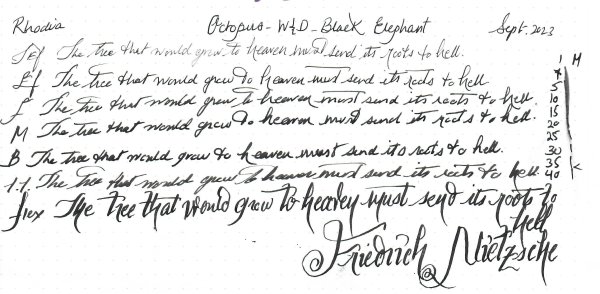 Rhodia Octopus - W&D - Black Elephant Sept. 2023
Sef The tree that would grow to heaven must send its roots to hell.
Ef The tree that would grow to heaven must send its roots to hell
F The tree that would grow to heaven must send its roots to hell.
M The tree that would grow to heaven must send its roots to hell.
B The tree that would grow to heaven must send its roots to hell.
1.1. The tree that would grow to heaven must send its roots to hell.
flex The tree that would grow to heaven must send its roots to
hell
Friedrich Nietzsche
M
5
10
15
20
25
30
35
40